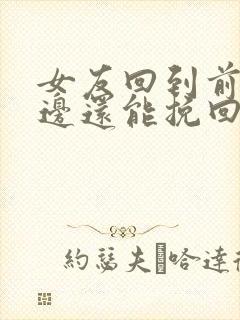 女友回到前
邊還能挽回
約瑟夫·哈達